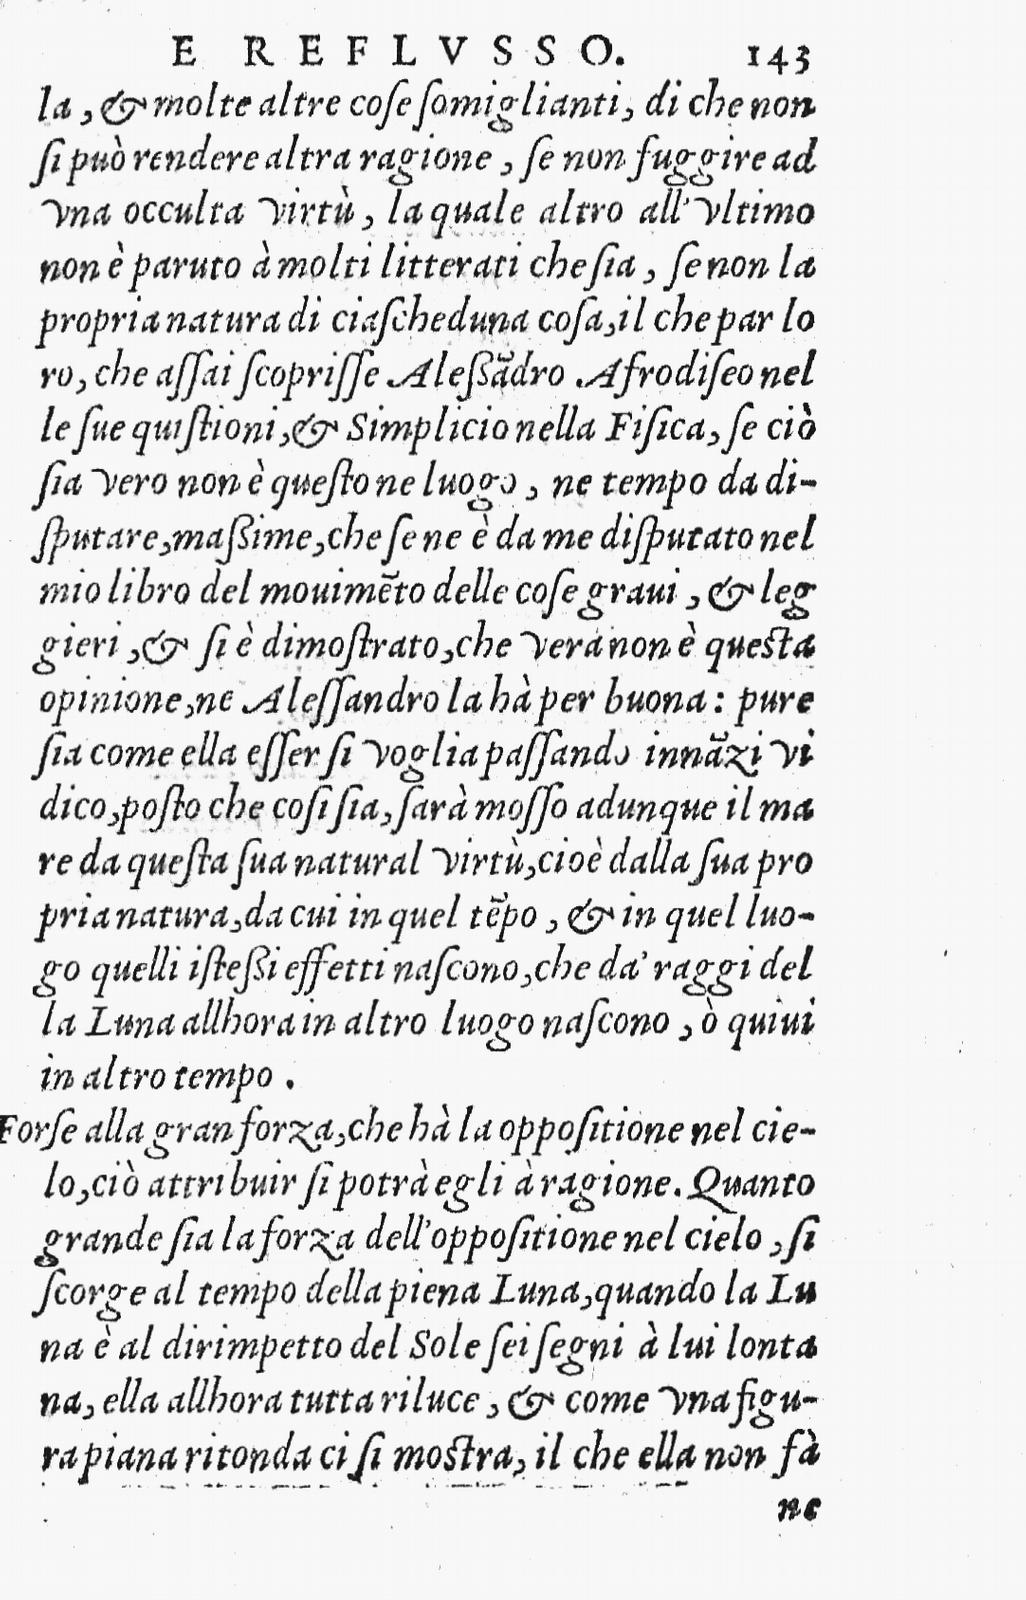 E REFLVSSO. 143
la, & molte altre coſe ſomiglianti, di che non
ſi può rendere altra ragione, ſe non fuggire ad
vna occulta virtù, la quale altro all'vltimo
non è paruto à molti litterati che ſia, ſe non la
propria natura di ciaſcheduna coſa, il che par lo
ro, che aſſai ſcopriſſe Aleßãdro Afrodiſeo nel
le ſue quiſtioni, & Simplicio nella Fiſica, ſe ciò
ſia vero non è queſto ne luogo, ne tempo da di-
ſputare, maßime, che ſe ne è da me diſputato nel
mio libro del mouimẽto delle coſe graui, & leg
gieri, & ſi è dimoſtrato, che vera non è questa
opinione, ne Aleſſandro la hà per buona: pure
ſia come ella eſſer ſi voglia paſſando innãzi vi
dico, poſto che coſi ſia, ſarà moſſo adunque il ma
re da queſta ſua natural virtù, cioè dalla ſua pro
pria natura, da cui in quel tẽpo, & in quel luo-
go quelli iſteßi effetti naſcono, che da' raggi del
la Luna allhora in altro luogo naſcono, ò quiui
in altro tempo.
Forſe alla gran forza, che hà la oppoſitione nel cie-
lo, ciò attribuir ſi potrà egli à ragione. Quanto
grande ſia la forza dell'oppoſitione nel cielo, ſi
ſcorge al tempo della piena Luna, quando la Lu
na è al dirimpetto del Sole ſei ſegni à lui lonta
na, ella allhora tutta riluce, & come vna figu-
ra piana ritonda ci ſi mostra, il che ella non fà
ne